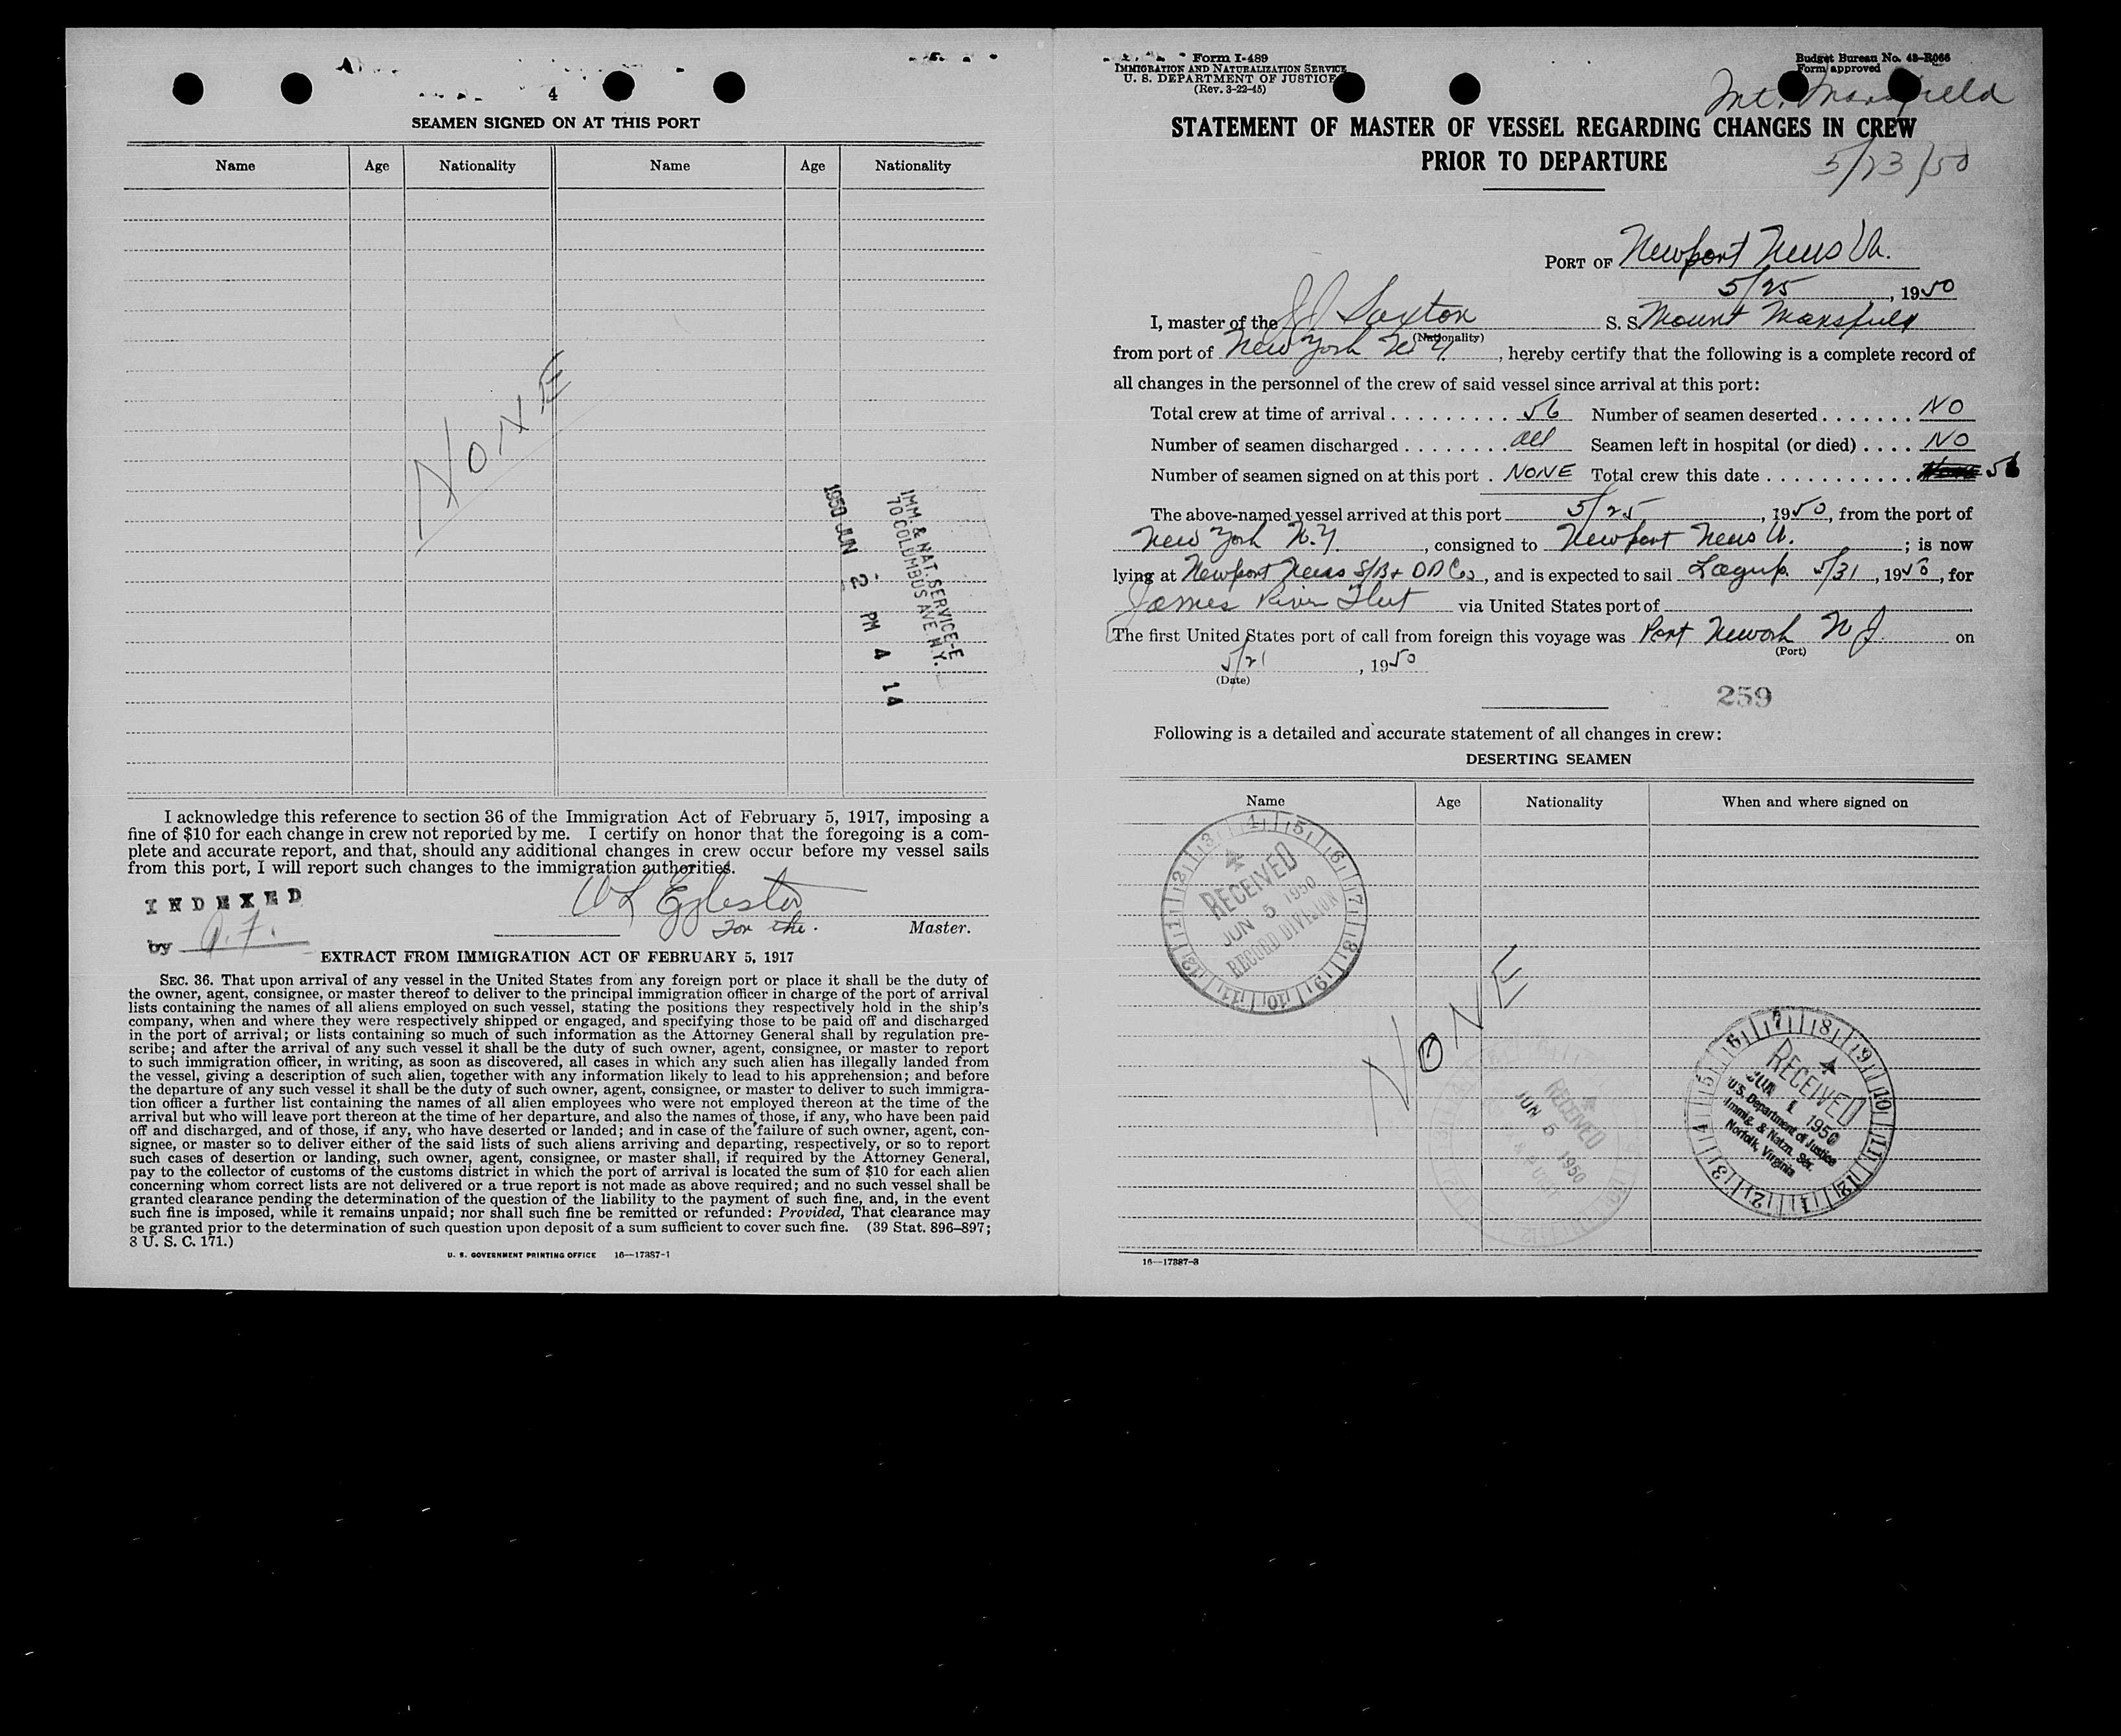 4
SEAMEN SIGNED ON AT THIS PORT
Name Age Nationality Name Age Nationality
NONE
IMM. & NAT. SERVICE-E
70 COLUMBUS AVE N.Y.
1950 JUN 2 PM 4 14
I acknowledge this reference to section 36 of the Immigration Act of February 5, 1917, imposing a
fine of $10 for each change in crew not reported by me. I certify on honor that the foregoing is a com-
plete and accurate report, and that, should any additional changes in crew occur before my vessel sails
from this port, I will report such changes to the immigration authorities.
INDEXED
by
For the. Master.
EXTRACT FROM IMMIGRATION ACT OF FEBRUARY 5, 1917
SEC. 36. That upon arrival of any vessel in the United States from any foreign port or place it shall be the duty of
the owner, agent, consignee, or master thereof to deliver to the principal immigration officer in charge of the port of arrival
lists containing the names of all aliens employed on such vessel, stating the positions they respectively hold in the ship's
company, when and where they were respectively shipped or engaged, and specifying those to be paid off and discharged
in the port of arrival; or lists containing so much of such information as the Attorney General shall by regulation pre-
scribe; and after the arrival of any such vessel it shall be the duty of such owner, agent, consignee, or master to report
to such immigration officer, in writing, as soon as discovered, all cases in which any such alien has illegally landed from
the vessel, giving a description of such alien, together with any information likely to lead to his apprehension; and before
the departure of any such vessel it shall be the duty of such owner, agent, consignee, or master to deliver to such immigra-
tion officer a further list containing the names of all alien employees who were not employed thereon at the time of the
arrival but who will leave port thereon at the time of her departure, and also the names of those, if any, who have been paid
off and discharged, and of those, if any, who have deserted or landed; and in case of the failure of such owner, agent, con-
signee, or master so to deliver either of the said lists of such aliens arriving and departing, respectively, or so to report
such cases of desertion or landing, such owner, agent, consignee, or master shall, if required by the Attorney General,
pay to the collector of customs of the customs district in which the port of arrival is located the sum of $10 for each alien
concerning whom correct lists are not delivered or a true report is not made as above required; and no such vessel shall be
granted clearance pending the determination of the question of the liability to the payment of such fine, and, in the event
such fine is imposed, while it remains unpaid; nor shall such fine be remitted or refunded: Provided, That clearance may
be granted prior to the determination of such question upon deposit of a sum sufficient to cover such fine. (39 Stat. 896–897;
8 U. S. C. 171.)
U. S. GOVERNMENT PRINTING OFFICE 16—17387-1
Form I-489
IMMIGRATION AND NATURALIZATION SERVICE
U. S. DEPARTMENT OF JUSTICE
(Rev. 3-22-45)
Budget Bureau No. 43-R066
Form approved
Mt. Mansfield
STATEMENT OF MASTER OF VESSEL REGARDING CHANGES IN CREW
PRIOR TO DEPARTURE
5/23/50
PORT OF Newport News Va.
5/25, 1950
I, master of the J J Saxton S. S. Mount Mansfield
(Nationality)
from port of New York N Y., hereby certify that the following is a complete record of
all changes in the personnel of the crew of said vessel since arrival at this port:
Total crew at time of arrival . . . . . . . . . . 56 Number of seamen deserted . . . . . . . NO
Number of seamen discharged . . . . . . . . all Seamen left in hospital (or died) . . . . NO
Number of seamen signed on at this port . NONE Total crew this date . . . . . . . . . . . . None 56
The above-named vessel arrived at this port 5/25, 1950, from the port of
New York N.Y., consigned to Newport News Va.; is now
lying at Newport News S/B + DD Co, and is expected to sail Layup. 5/31, 1950, for
James River Fleet via United States port of
The first United States port of call from foreign this voyage was Port Newark N J. on
(Port)
5/21, 1950
(Date)
259
Following is a detailed and accurate statement of all changes in crew:
DESERTING SEAMEN
Name Age Nationality When and where signed on
RECEIVED
JUN 5 1950
RECORD DIVISION
NONE
RECEIVED
JUN 5 1950
RECEIVED
JUN 1 1950
U.S. Department of Justice
Immig. & Natzn. Ser.
Norfolk, Virginia
16—17387-3